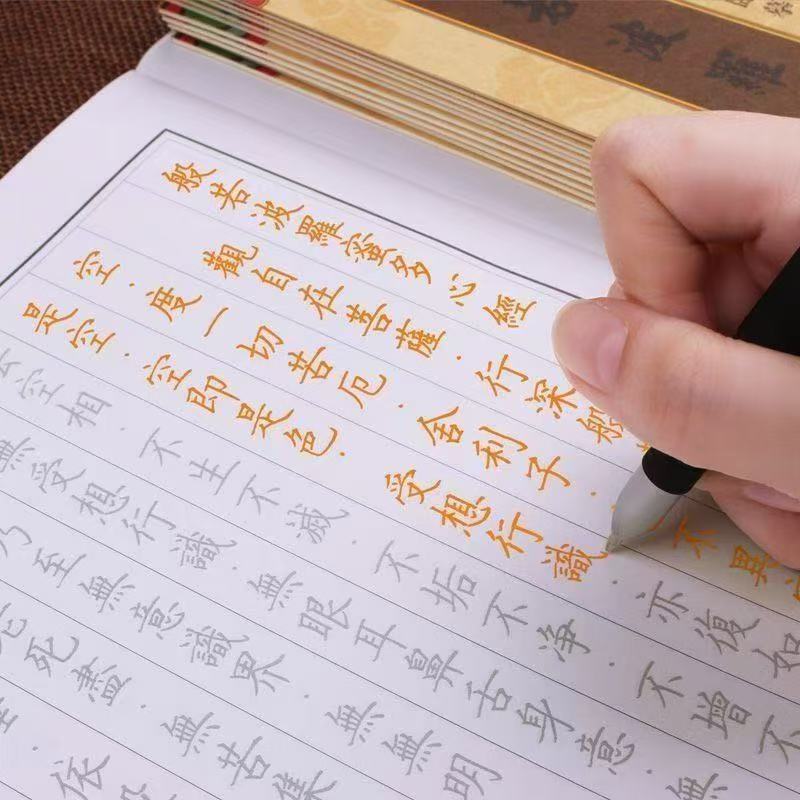 若波羅
般若波羅蜜多心經
觀自在菩薩．行深般
空．度一切苦厄．舍利子．不異
是空．空即是色．受想行識．亦復如
空相．不生不滅．不垢不净．不增不
無受想行識．無眼耳鼻舌身意．無
乃至無意識界．無無明
死盡．無苦集
依